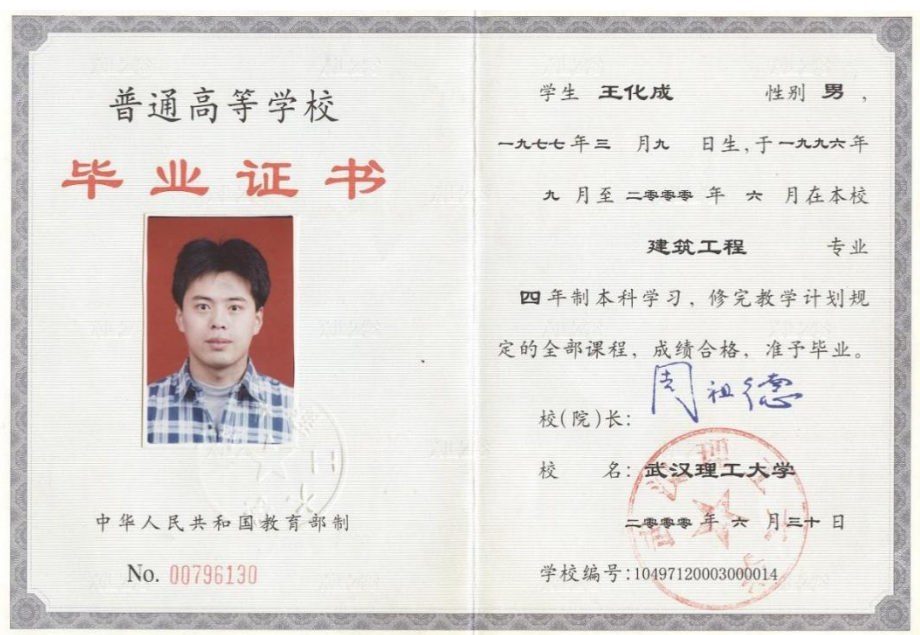 普通高等学校
毕业证书
中华人民共和国教育部制
No. 00796130
学生 王化成 性别 男 ，
一九七七年三 月九 日生，于一九九六年
九 月至 二零零零 年 六 月在本校
建筑工程 专业
四 年制本科学习，修完教学计划规
定的全部课程，成绩合格，准予毕业。
校(院)长： 周祖德
校 名：武汉理工大学
二零零零 年 六 月三十 日
学校编号：10497120003000014